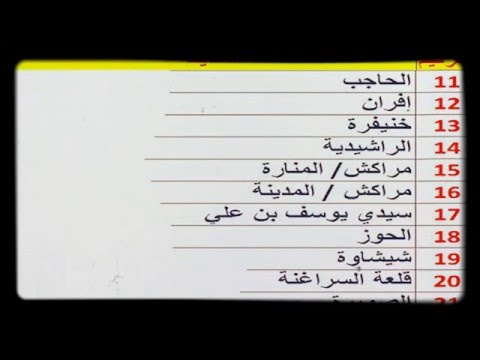 11 الحاجب
12 إفران
13 خنيفرة
14 الراشيدية
15 مراكش/ المنارة
16 مراكش / المدينة
17 سيدي يوسف بن علي
18 الحوز
19 شيشاوة
20 قلعة السراغنة
21